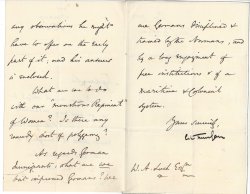 any observations he might
have to offer on the early
part of it, and his answer
is enclosed.
What are we to do
with our "monstrous Regiment
of Women"? Is there any
remedy short of polygamy?
As regards German
immigrants: what are we
but improved Germans? We
are Germans disciplined &
trained by the Normans, and
by a long enjoyment of
free institutions & of a
maritime & Colonial
system.
Yours sincerely,
W. A. Esq